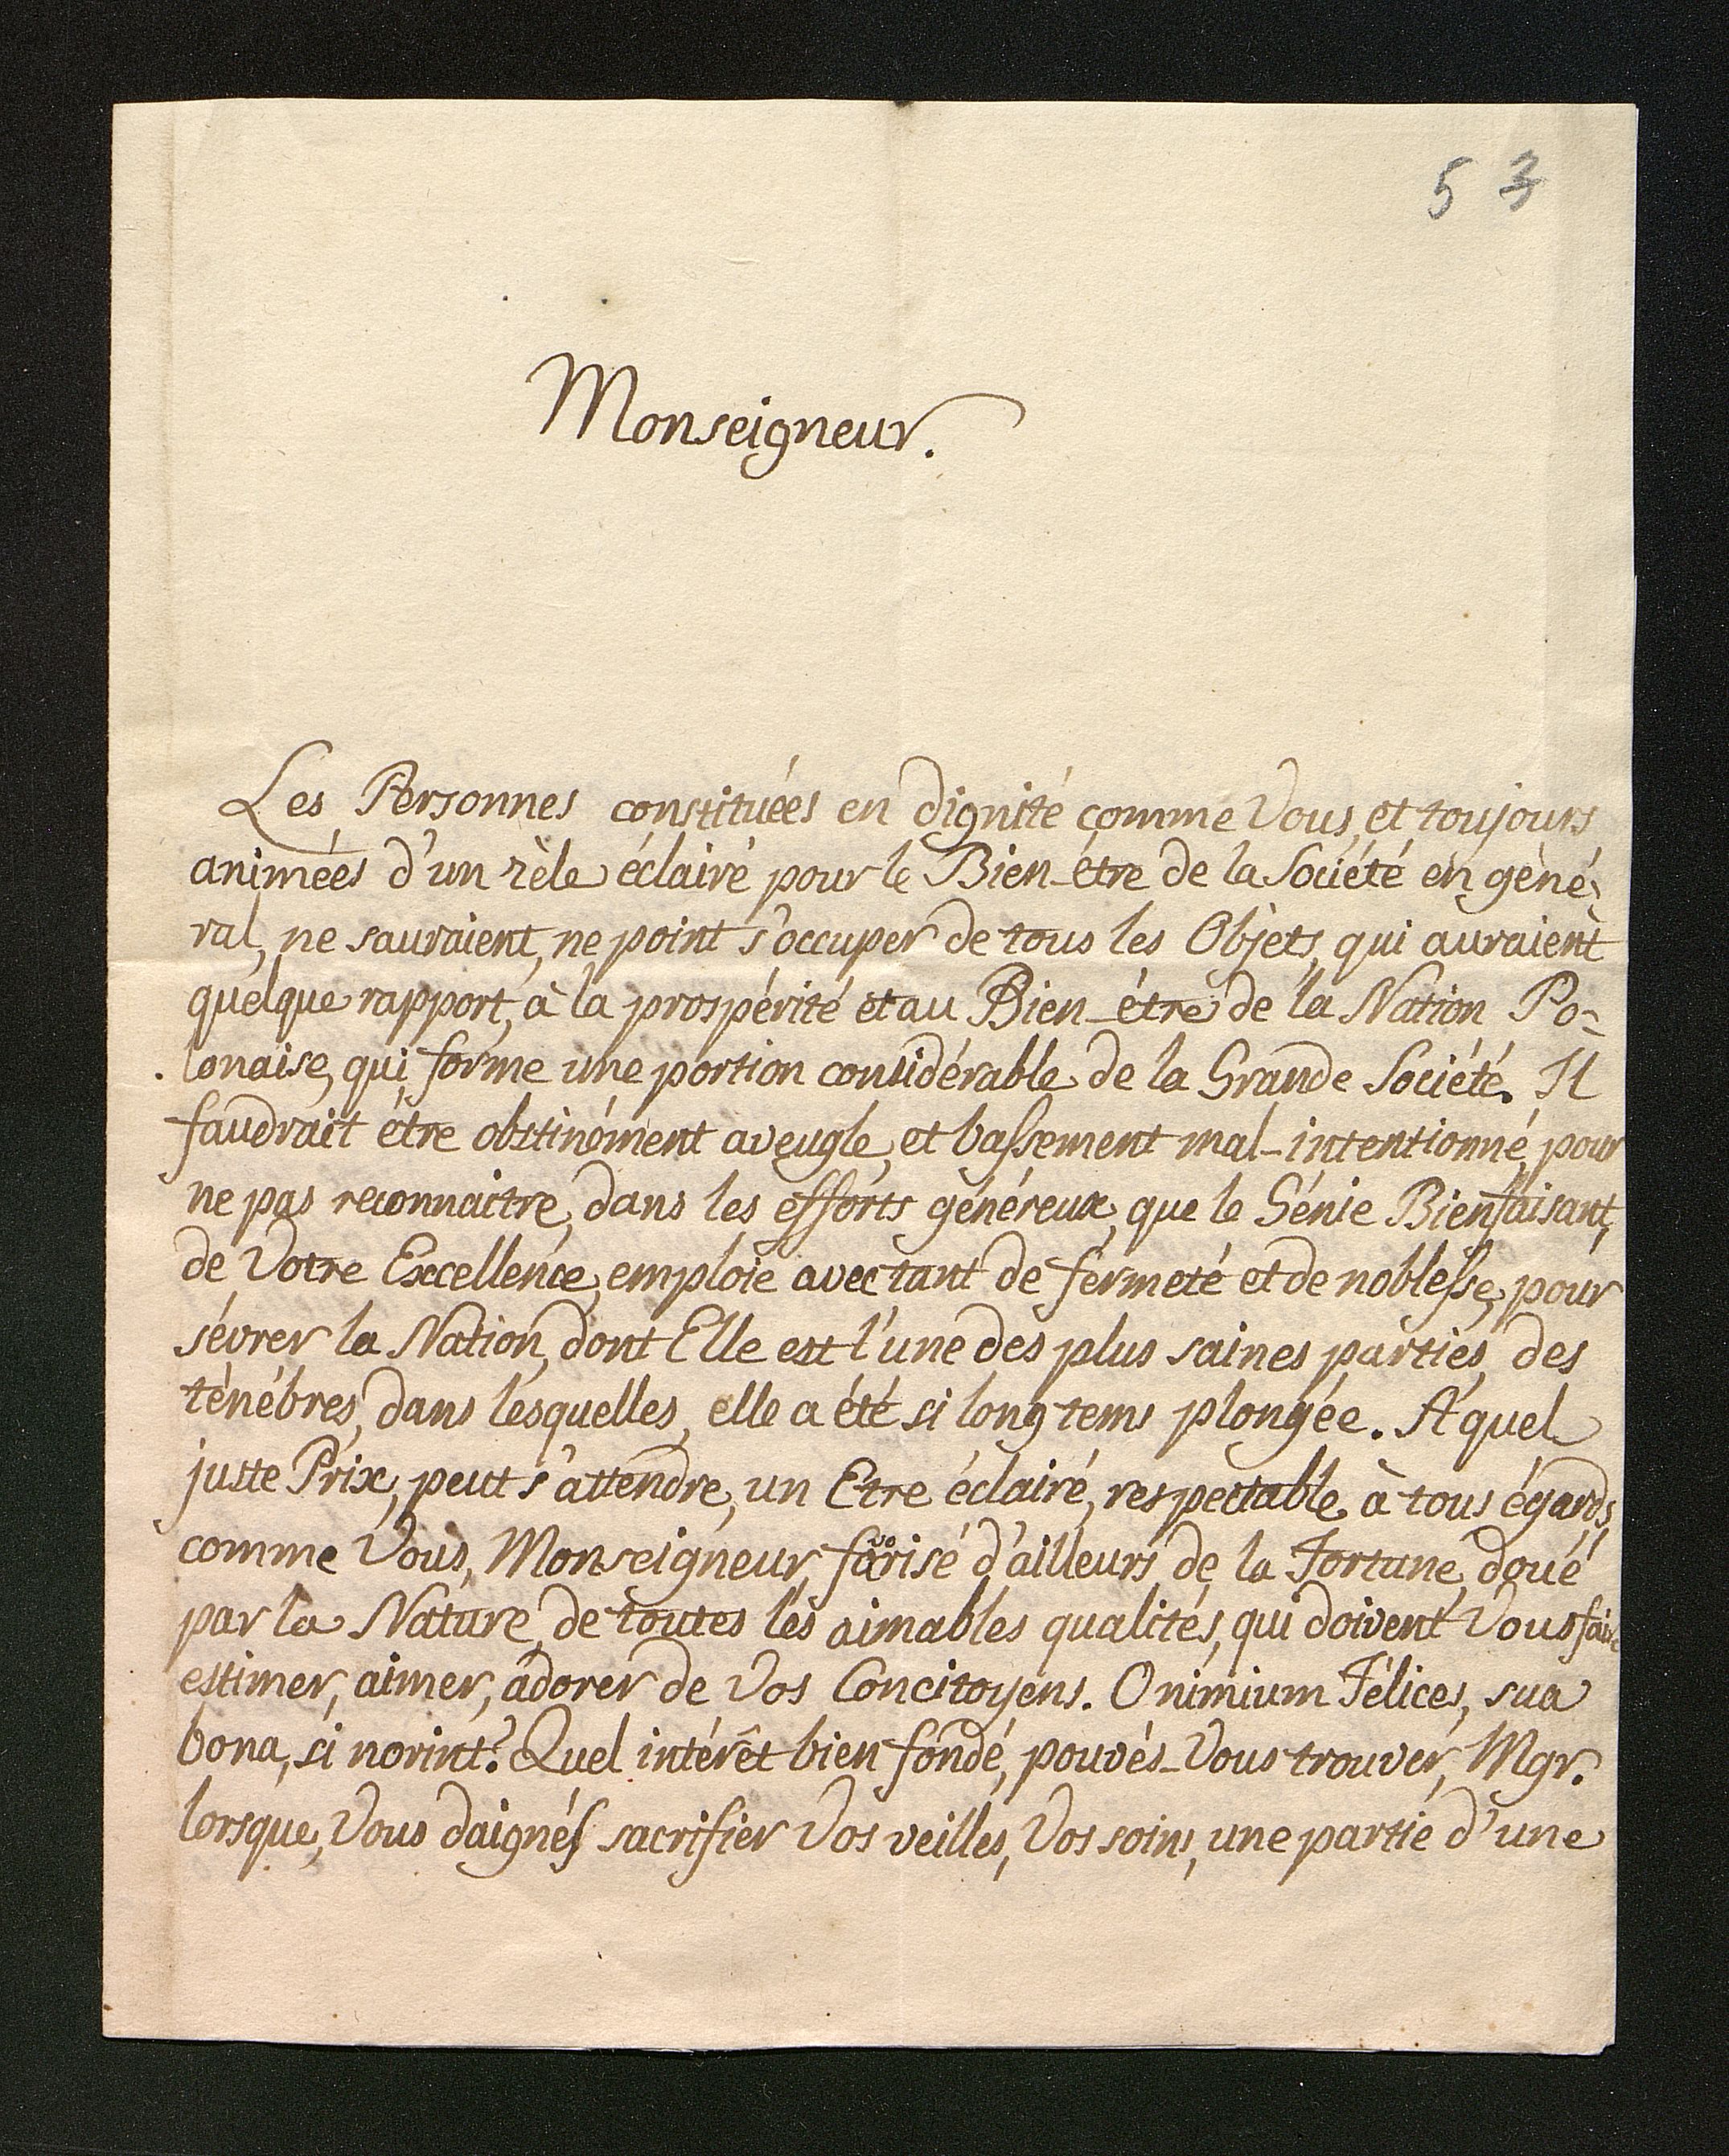 53
Monseigneur.
Les Personnes constituées en dignité comme Vous, et toujours
animées d'un zèle éclairé pour le Bien-être de la Société en géné-
ral, ne sauraient, ne point s'occuper de tous les Objets, qui auraient
quelque rapport, à la prospérité et au Bien-être de la Nation Po-
lonaise, qui forme une portion considérable de la Grande Société. Il
faudrait être obstinément aveugle, et bassement mal-intentionné, pour
ne pas reconnaitre, dans les efforts généreux, que le Génie Bienfaisant,
de Votre Excellence, emploie avec tant de fermeté et de noblesse, pour
sévrer la Nation, dont Elle est l'une des plus saines parties, des
ténébres, dans lesquelles, elle a été si long tems plongée. A quel
juste Prix, peut s'attendre, un Etre éclairé, respectable à tous égards,
comme Vous, Monseigneur, favorisé d'ailleurs de la Fortune, doué
par la Nature, de toutes les aimables qualités, qui doivent Vous faire
estimer, aimer, adorer de Vos Concitoyens. O nimium Félices, sua
bona, si norint? Quel intérêt bien fondé, pouvés-Vous trouver, Mgr.
lorsque, Vous daignés sacrifier Vos veilles, Vos soins, une partie d'une